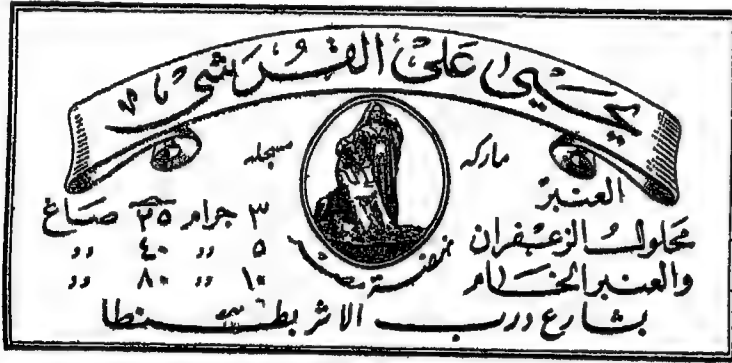 يحيى على القرشى
ماركه مسجله
نهضة مصر
العنبر
محلول الزعفران
والعنبر الخام
٣ جرام ٢٥ صاغ
٥ „ ٤٠ „
١٠ „ ٨٠ „
بشارع درب الاثر بطنطا